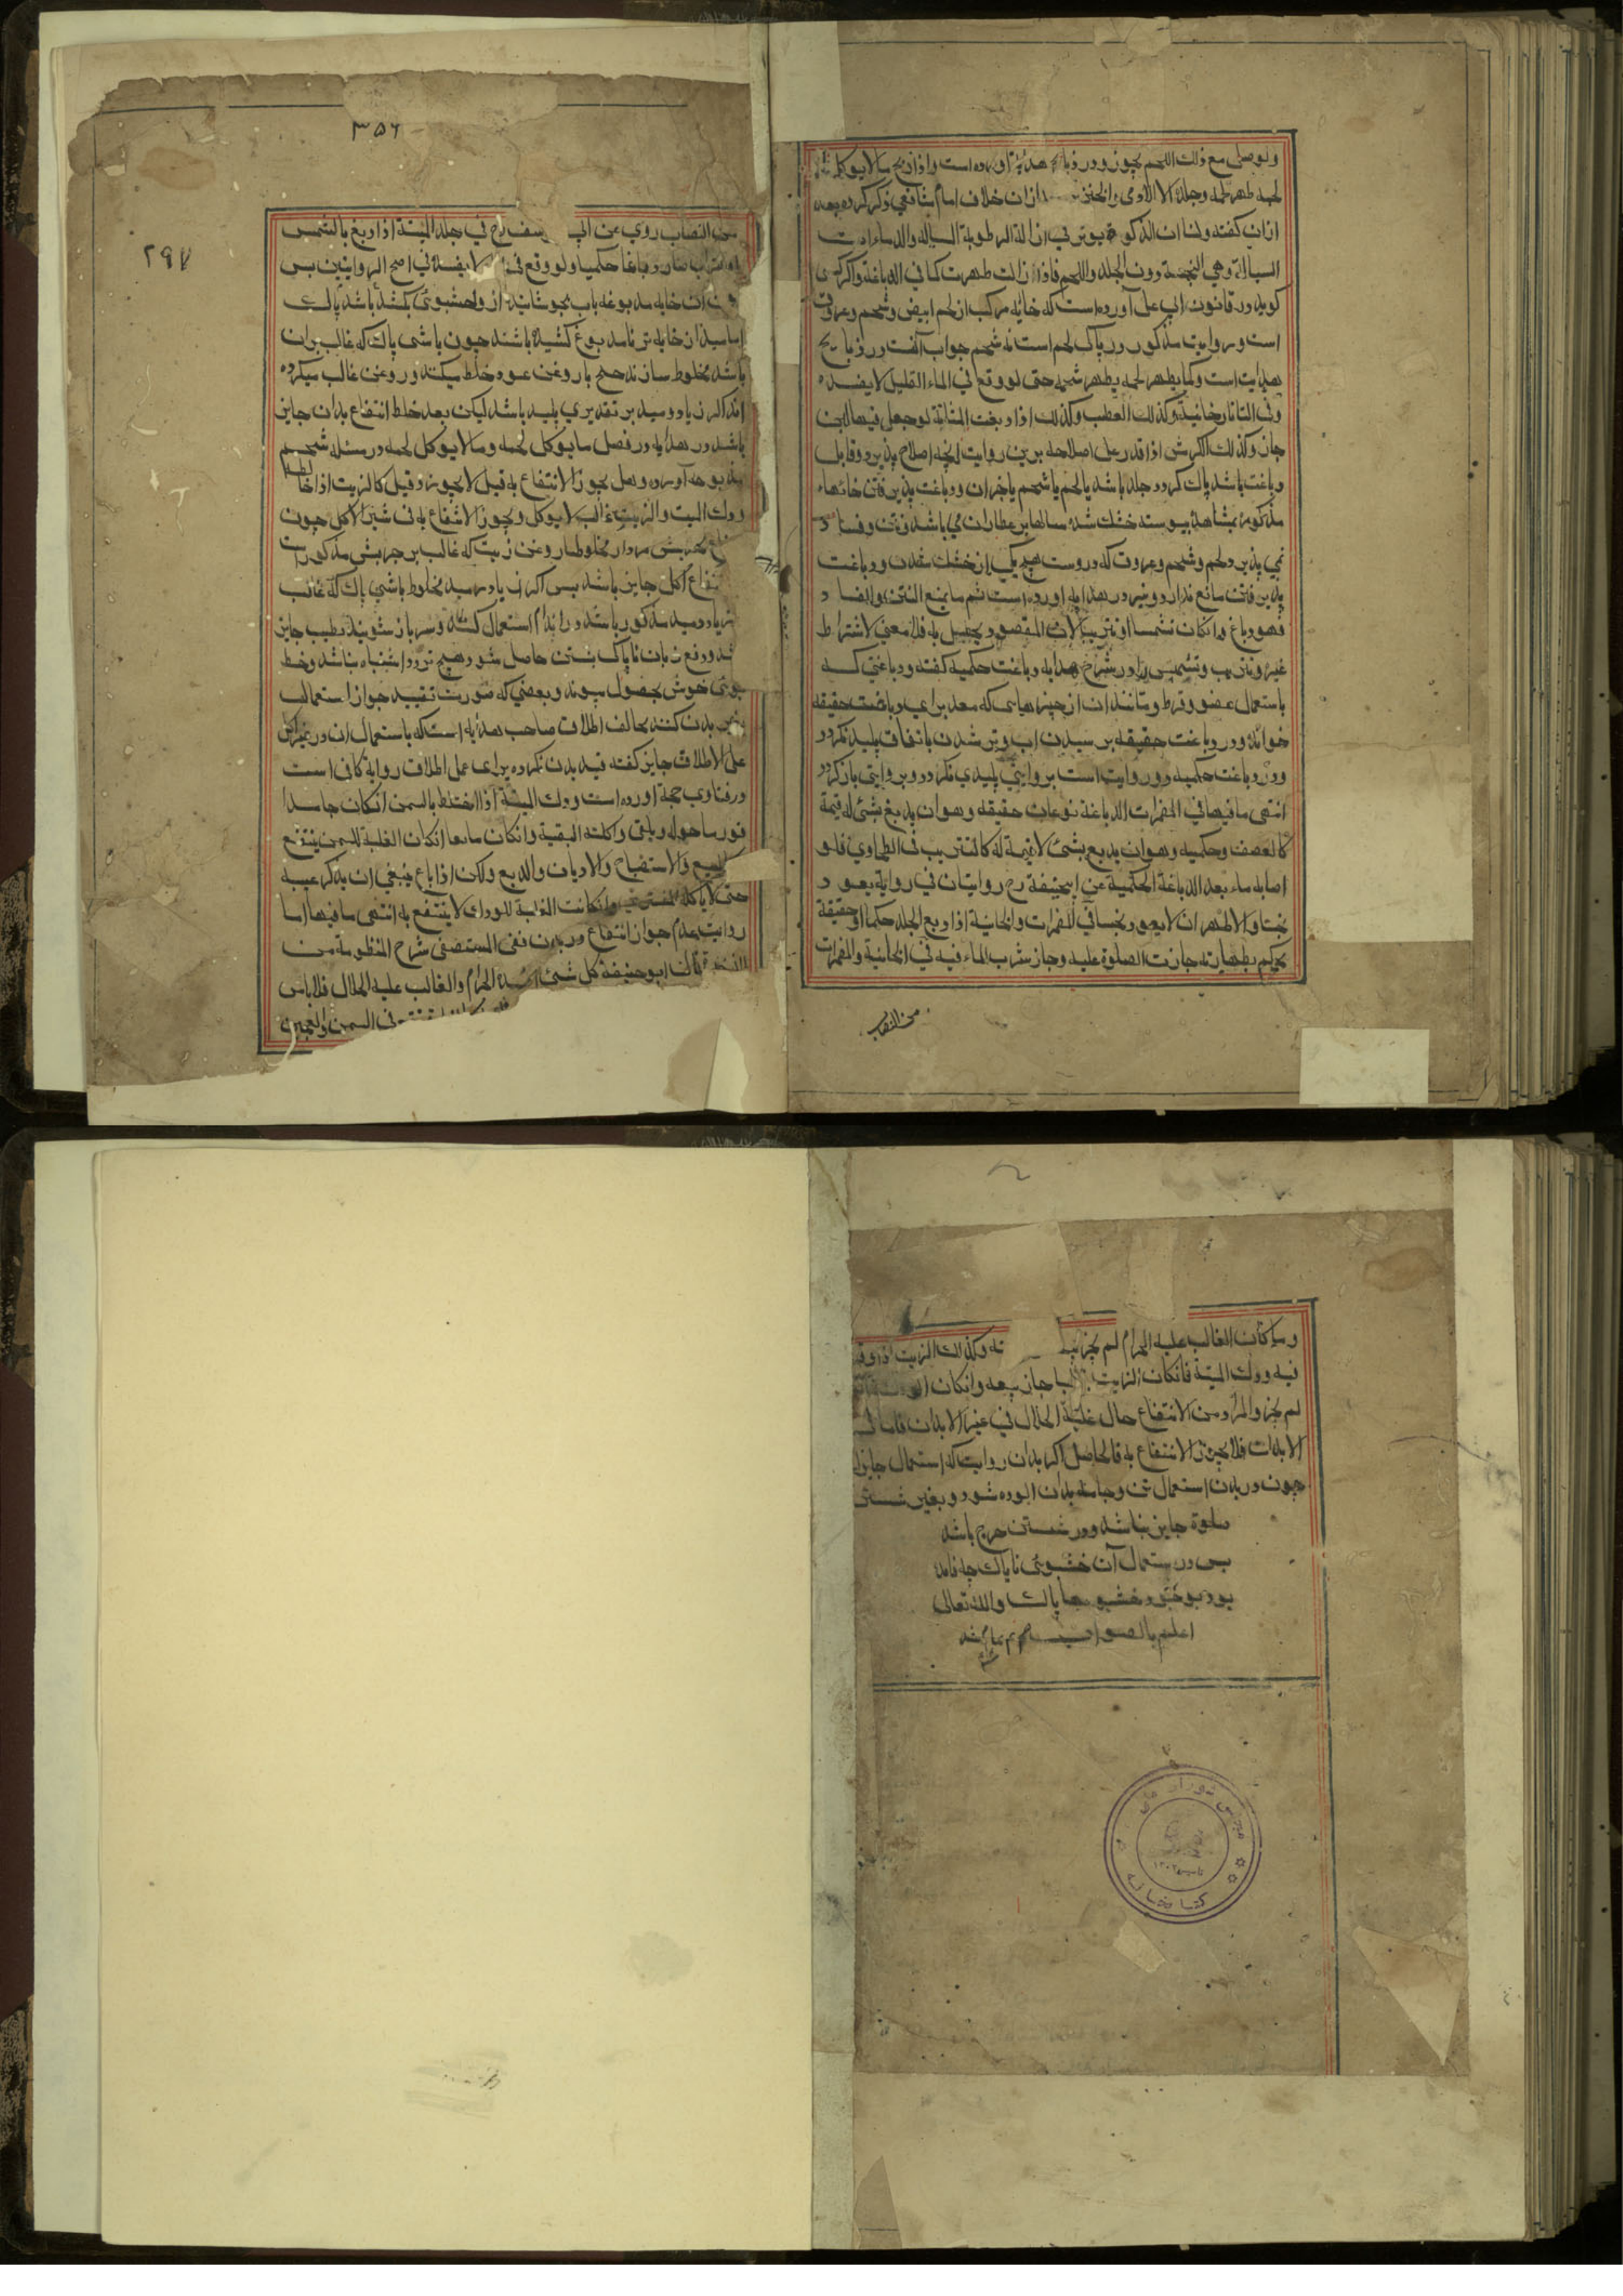 ولو صلی مع ذلك اللحم یجوز ودر ذبایح هدایه آورده است واذا ذبح ما لا یوکل
لحمه طهر لحمه وجلده الا الادمی والخنزیر ازان خلاف امام شافعی ذکر کرده بعد
ازان کفته ولنا ان الذکوة یوثر فی ازالة الرطوبة السیاله والدماء
السیالة وهی النجسة دون الجلد واللحم فاذا زالت طهرت کما فی الدباغة واکر کسی
کوید در قانون ابی علی آورده است که خایه مرکب از لحم ابیض وشحم وعروق
است وروایت مذکور در پاکی لحم است نه شحم جواب آنست در ذبایح
هدایت است وکما یطهر لحمه یطهر شحمه حتی لو وقع فی الماء القلیل لا یفسده
وفی التاتارخانیة وکذلك العطب وکذلك اذا دبغت المثانة لوجعل فیها اللبن
جاز وکذلك الکرش اذا قدر علی اصلاحه برین روایت انچه اصلاح پذیرد وقابل
دباغت باشد پاك کردد جلد باشد یا لحم یا شحم یا جزان ودباغت پذیرفتن خایهاء
مذکور بمشاهده پیوسته خشك شده سالها بر عطاران می باشد ونتن وفساد
نمی پذیرد ولحم وشحم وعروق که دروست هر یکی از خشك شدن ودباغت
پذیرفتن مانع ندارد ونیز در هدایه اورده است ثم ما یمنع النتن والفساد
فهو دباغ وانکان تشمیسا او تتریبا لان المقصود یحصل به فلا معنی لاشتراط
غیره وتتریب وتشمیس را در شرح هدایه دباغت حکمیه کفته ودباغتی که
باستعمال عفص وقرظ ومانند ان از چیزهای که معد برای دباغت حقیقه
خوانده ودر دباغت حقیقه بر سیدن اب وتر شدن باتفاق پلید نکردد
ودر دباغت حکمیه دو روایت است بروایتی پلیدی نکردد وبروایتی باز کردد
انتهی ما فیها فی المضمرات الدباغة نوعان حقیقه وهو ان یدبغ بشئ له قیمة
کالعصف وحکمیه وهو ان یدبع بشئ لا قیمة له کالتتریب فی الطحاوی فلو
اصابه ماء بعد الدباغة الحکمیة عن ابیحنیفة رح روایتان فی روایة یعود
نجسا والاظهر ان لا یعود نجسا فی المضمرات والخانیة اذا دبغ الجلد حکما او حقیقة
یحکم بطهارته جازت الصلوة علیه وجاز شرب الماء فیه فی الخانیة والمضمرات
من النصاب
۳۵۶
۲۹۷
من النصاب روی عن ابی یوسف رح فی جلد المیتة اذا دبغ بالشمس
او التراب صار دباغا حکمیا ولو وقع فی لا یفسده فی اصح الروایتین پس
ان خایه مدبوغه باب بجوشانند از وخشبوئ بکشد باشد پاك
اما سیدان خایه تر نامدبوغ کشیده باشند چون باشی پاك که غالب بران
باشد مخلوط سازند هیچ با روغن عود خلط میکند وروغن غالب میکرده
اند اکر زیاد وسید بر تقدیری پلید باشد لیکن بعد خلط انتفاع بدان جایز
باشد در هدایه در فصل ما یوکل لحمه وما لا یوکل لحمه در مسئله شحم
مذبوحه آورده وهل یجوز الانتفاع به قیل لا یجوز وقیل کالزیت اذا خالطه
ودك المیت والزیت غالب لا یوکل ویجوز الانتفاع به فی غیر الاکل چون
چربش مردار مخلوط با روغن زیت که غالب بر چربش مذکور است
انتفاع اکل جایز باشد پس اکر زیاد وسید مخلوط باشی پاك که غالب
زیاد وسید مذکور باشد در اندام استعمال کنند وسر باز شویند بطیب جایز
شد ودفع زبان ناپاك بشستن حاصل شود هیچ تردد اشتباه نباشد وحظ
بوئ خوش بحصول پیوند وبعضی که صورت تقیید جواز استعمالب
بدن کنند مخالف اطلاق صاحب هدایه است که باستعمال ان در غیر اکل
علی الاطلاق جایز کفته قید بدن نکرده برای عمل اطلاق روایة کافی است
در فتاوی حجة اورده است ودك المیتة اذا اختلط بالسمن انکان جامدا
قور ما حوله ویلقی واکلت البقیة وانکان مایعا انکان الغلبة للسمن ینتفع
للبیع والاستصباح والادیان والدبغ ولکن اذا باع ینبغی ان یذکر عیبه
حتی لا یاکله المشتری وانکانت الغلبة للودك لا ینتفع به انتهی ما فیها اما
روایت عدم جواز انتفاع در بدن ففی المستصفی شرح المنظومة من
قال ابو حنیفة کل شئ افسده الحرام والغالب علیه الحلال فلا باس
فی السمن والعجین
وما کان الغالب علیه الحرام لم یجز بیعه وکذلك الزیت اذا وقع
فیه ودك المیتة فانکان الزیت غالبا جاز بیعه وانکان الودك غالبا
لم یجز والمراد من الانتفاع حال غلبة الحلال فی غیر الابدان فاما فی
الابدان فلا یجوز الانتفاع به فالحاصل اکر بدان روایت که استعمال جایز
چون در بدن استعمال تن وجامه بدان الوده شود وبغیر شستن
صلوة جایز نباشد ودر شستن حرج باشد
پس در استعمال آن خشبوئ ناپاك چه فایده
بود خشبوها پاك والله تعالی
اعلم بالصواب
مجلس شورای ملی
تاسیس ۱۳۰۲
کتابخانه